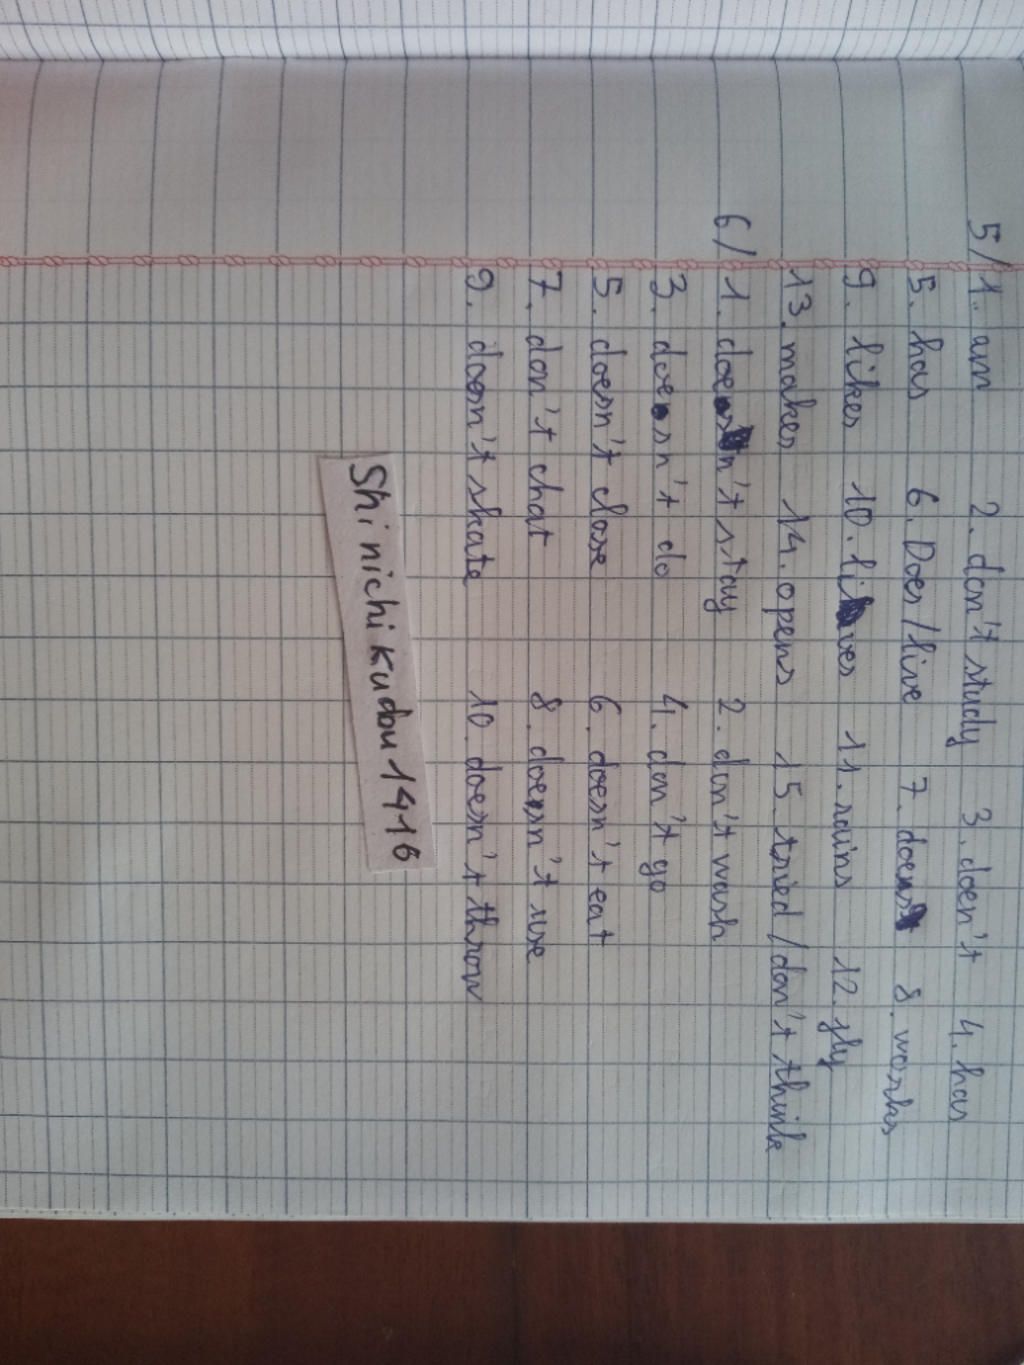 5/ 1. am 2. don't study 3. doen't 4. has
5. has 6. Does/live 7. does 8. works
9. likes 10. lives 11. rains 12. fly
13. makes 14. opens 15. tried/don't think
6/ 1. doesn't stay 2. don't wash
3. doesn't do 4. don't go
5. doesn't close 6. doesn't eat
7. don't chat 8. doesn't use
9. doesn't skate 10. doesn't throw
Shinichi Kudou 1416